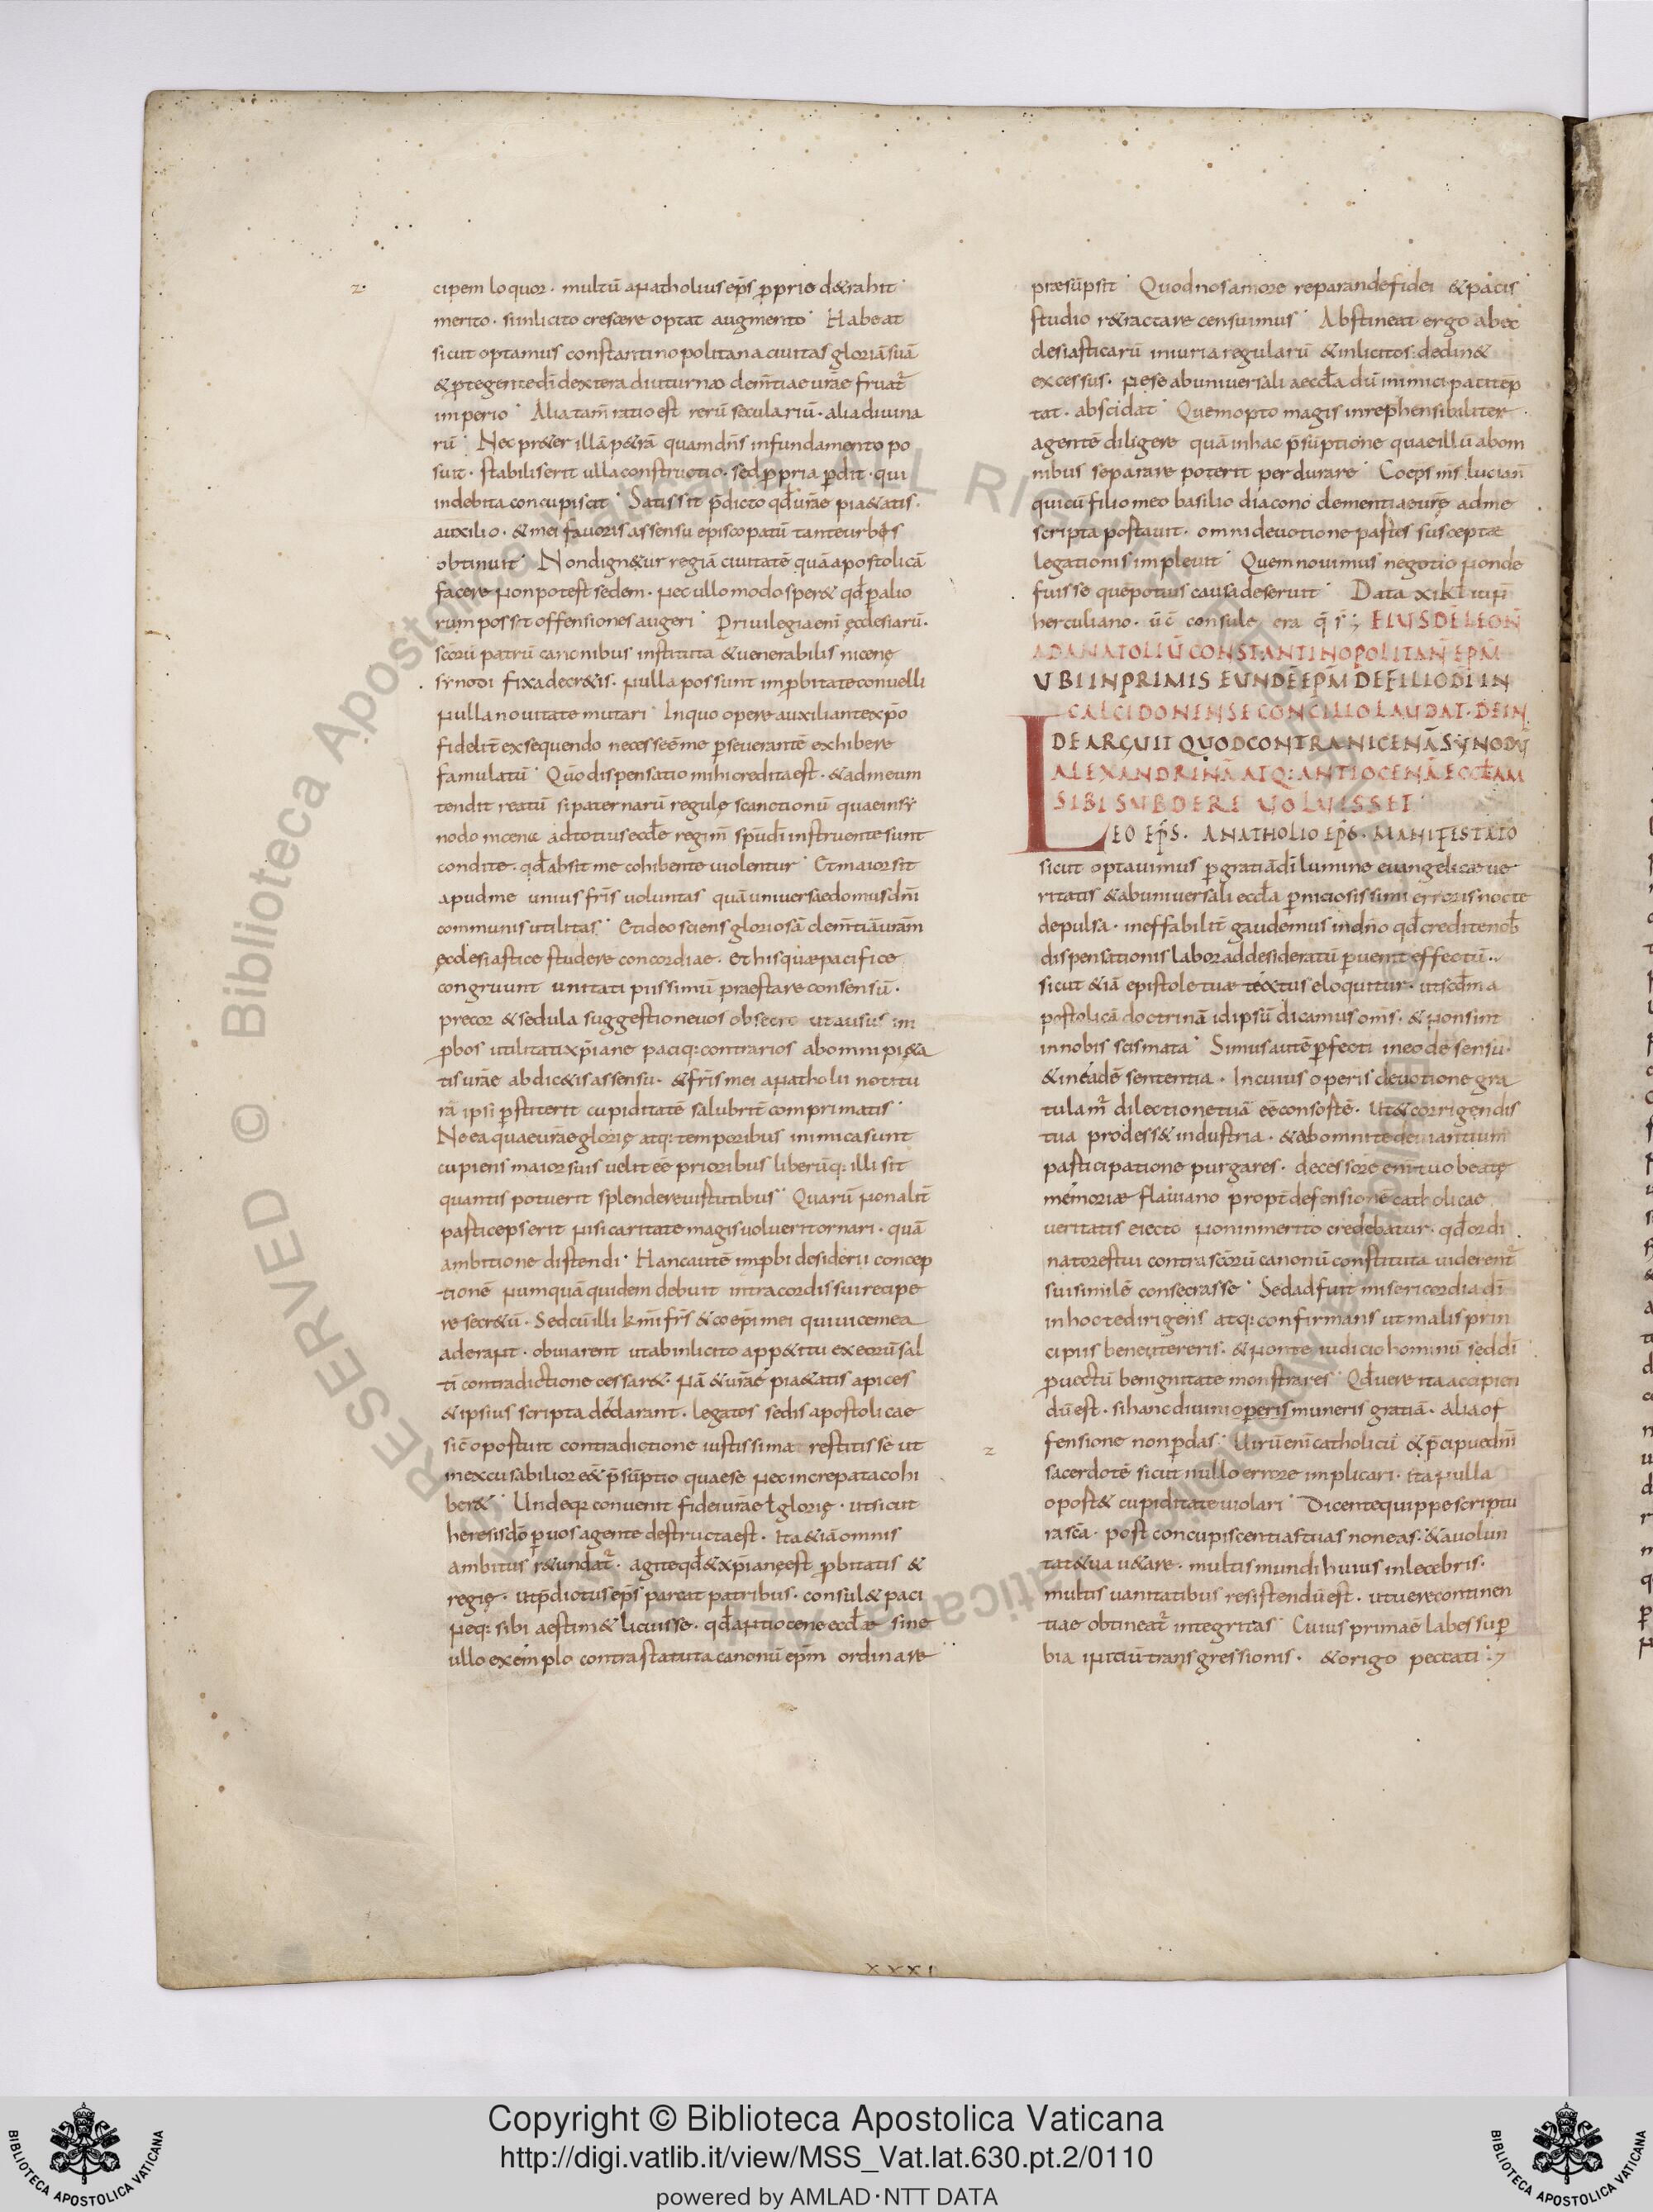 z·
cipem loquor · multū anatholius ep̄s p̱prie d&rahit ·
merito · si inlicito crescere optat augmento · Habeat
sicut optamus constantinopolitana ciuitas gloriā suā
& p̱tegente dī dextera diuturno clem̄tiae ur̄ae fruat̄
imperio · Alia tam̄ ratio est rerū seculariū · alia diuina
rū · Nec pr&er illā p&rā quam dn̄s in fundamento po
suit · stabilis erit ulla constructio · sed p̱pria p̱dit · qui
indebita concupiscit · Satis sit p̄dicto qd̄ ur̄ae pia&atis ·
auxilio · & mei fauoris assensu episcopatū tante urbis
obtinuit · Non dign&ur regiā ciuitatē quā apostolicā
facere non potest sedem · nec ullo modo sper& qd̄ p̱ alio
rum possit offensiones augeri · Priuilegia enī ęcclesiarū ·
sc̄orū patrū canonibus instituta & uenerabilis nicenę
synodi fixa decr&is · nulla possunt inp̱bitate conuelli
nulla nouitate mutari · In quo opere auxiliante xp̄o
fidelit̄ exsequendo necesse ē me p̱seuerantē exhibere
famulatū · Qūo dispensatio mihi credita est · & ad meum
tendit reatū si paternarū regulę scanctionū quae in sy
nodo nicena ad totius eccl̄e regim̄ sp̄u dī instruente sunt
condite · qd̄ absit me cohibente uiolentur · Et maior sit
apud me unius fr̄is uoluntas quā uniuersae domus dn̄i
communis utilitas · Et ideo sciens gloriosā clem̄tiā ur̄am
ęcclesiastice studere concordiae · et his quae pacifice
congruunt unitati piissimū praestare consensū ·
precor & sedula suggestione uos obsecro ut ausus in
p̱bos utilitati xp̄iane paciq: contrarios ab omni pi&a
tis ur̄ae abdic&is assensu · & fr̄is mei anatholii nocitu
rā ipsi p̱stiterit cupiditatē salubrit̄ comprimatis ·
Ne ea quae ur̄ae glorię atq: temporibus inimica sunt
cupiens maior suis uelit eē prioribus liberūq: illi sit
quantis potuerit splendere uirtutibus · Quarū non alit̄
particeps erit nisi caritate magis uoluerit ornari · quā
ambitione distendi · Hanc autē inp̱bi desiderii concep
tionē numquā quidem debuit intra cordis sui recipe
re secr&ū · Sed cū illi k̄mi fr̄s & coep̄i mei qui uice mea
aderant · obuiarent ut ab inlicito app&itu ex eorū sal
tī contradictione cessar& · nā & ur̄ae pia&atis apices
& ipsius scripta declarant · legatos sedis apostolicae
sic̄ oportuit contradictione iustissima restitisse ut
inexcusabilior eē& p̄sūptio quae se nec increpata cohi
ber& · Unde q̄r conuenit fidei ur̄ae t̄ glorię · ut sicut
heresis dō p̱ uos agente destructa est · Ita &iā omnis
ambitus r&undat̄ · agite qd̄ & xp̄ianę est p̱bitatis &
regię · ut p̄dictus ep̄s pareat patribus · consul& paci
neq: sibi aestim& licuisse · qd̄ antiocene eccl̄ae sine
ullo exemplo contra statuta canonū ep̄m ordinare
praesūpsit · Quod nos amore reparande fidei & pacis ·
studio r&ractare censuimus · Abstineat ergo ab ec
clesiasticarū iniuria regularū & inlicitos declin&
excessus · ne se ab uniuersali aeccl̄a dū inimica paci tēp
tat · abscidat · Quem opto magis inrephensibiliter
agentē diligere quā in hac p̄sūptione quae illū ab om
nibus separare poterit perdurare · Coep̄s m̄s lucian̄
qui cū filio meo basilio diacono clementiae ur̄ę ad me
scripta portauit · omni deuotione partes susceptae
legationis impleuit · Quem nouimus negotio non de
fuisse quē potius causa deseruit · Data xi kl̄ iun̄
herculiano · ūc̄ consule era q̄ s̄ ; EIUSDĒ LEON̄
AD ANATOLIŪ CONSTANTINOPOLITAN̄ EP̄M
VBI IN PRIMIS EUNDĒ EP̄M DE FILIO DĪ IN
CALCIDONENSE CONCILIO LAUDAT · DEIN
DE ARGUIT QUOD CONTRA NICENĀ SYNODŪ
ALEXANDRINĀ ATQ: ANTIOCENĀ ECCL̄AM
SIBI SUBDERE UOLUISSET ·
LEO EP̄S · ANATHOLIO EP̄O · MANIFESTATO
sicut optauimus p̱ gratiā dī lumine euangelicae ue
ritatis & ab uniuersali eccl̄a p̱niciosissimi erroris nocte
depulsa · ineffabilit̄ gaudemus in dn̄o qd̄ creditę nob̄
dispensationis labor ad desideratū p̱uenit effectū ·
sicut &iā epistole tuae textus eloquitur · ut scd̄m a
postolicā doctrinā id ipsū dicamus om̄s · & non sint
in nobis scismata · Simus autē p̱fecti in eode sensu ·
& in eadē sententia · In cuius operis deuotione gra
tulam̄ dilectione tuā eē consortē · Ut & corrigendis
tua prodess& industria · & ab omni te deuiantium
participatione purgares · decessore enī tuo beatę
memoriae flauiano propt̄ defensionē catholicae
ueritatis eiecto non inmerito credebatur · qd̄ ordi
natores tui contra sc̄orū canonū constituta uiderent̄
sui similē consecrasse · Sed adfuit misericordia dī
in hoc te dirigens atq: confirmans ut malis prin
cipiis bene utereris · & non te iudicio hominū sed dī
p̱uectū benignitate monstrares · Qd̄ uere ita accipien
dū est · si hanc diuini operis muneris gratiā · alia of
z
fensione non p̱das · Uirū enī catholicū & p̄cipue dn̄i
sacerdotē sicut nullo errore implicari · Ita nulla
oport& cupiditate uiolari · Dicente quippe scriptu
ra sc̄a · post concupiscentias tuas non eas · & a uolun
tat& ua u&are · multis mundi huius inlecebris ·
multis uanitatibus resistendū est · ut uere continen
tiae obtineat̄ integritas · Cuius primae labes sup̱
bia initiū transgressionis · & origo peccati ·
XXXI
Copyright © Biblioteca Apostolica Vaticana
http://digi.vatlib.it/view/MSS_Vat.lat.630.pt.2/0110
powered by AMLAD·NTT DATA
BIBLIOTECA APOSTOLICA VATICANA
BIBLIOTECA APOSTOLICA VATICANA